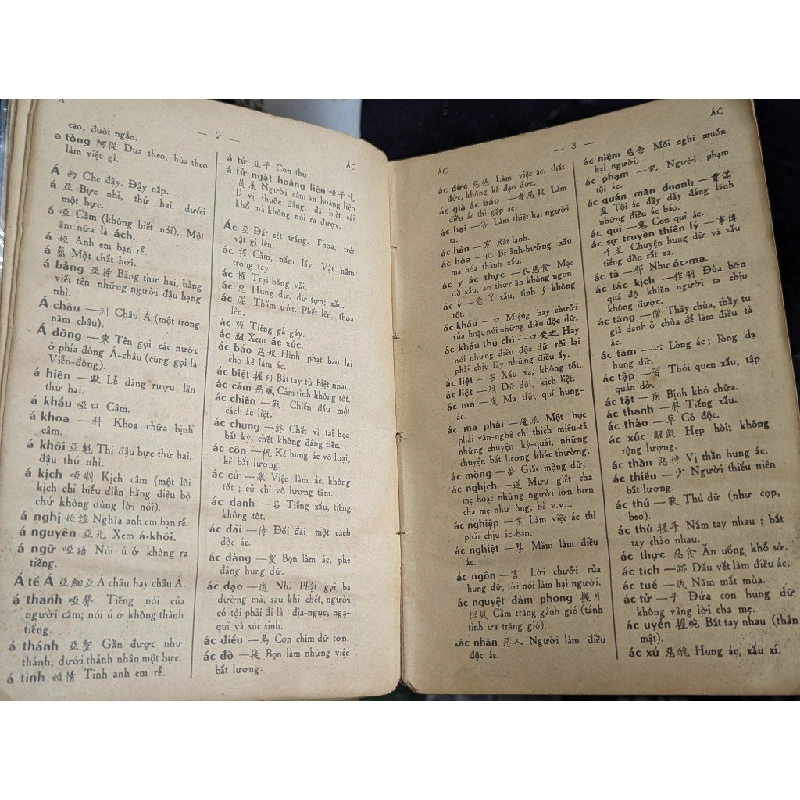 — 2 —
ÁC
cao, đuôi ngắn.
a tòng 阿從 Dua theo, hùa theo
làm việc gì.
Á 襾 Che đậy. Đậy nắp.
á 亞 Bực nhì, thứ hai, dưới
một bực.
á 啞 Câm (không biết nói). Một
âm nữa là ách.
á 婭 Anh em bạn rể.
á 氬 Một chất hơi.
á bảng 亞榜 Bảng thứ hai, bảng
viết tên những người đậu hạng
nhì.
Á châu —洲 Châu Á (một trong
năm châu).
Á đông —東 Tên gọi các nước
ở phía đông Á-châu (cũng gọi là
Viễn-đông).
á hiến —獻 Lễ dâng rượu lần
thứ hai.
á khẩu 啞口 Câm.
á khoa —科 Khoa chữa bịnh
câm.
á khôi 亞魁 Thi đậu bực thứ hai,
đậu thứ nhì.
á kịch 啞劇 Kịch câm (một lối
kịch chỉ biểu diễn bằng điệu bộ
chứ không dùng lời nói).
á nghị 婭誼 Nghĩa anh em bạn rể.
á nguyên 亞元 Xem á-khôi.
á ngữ 啞語 Nói ú ớ không ra
tiếng.
Á tế Á 亞細亞 Á châu hay châu Á.
á thanh 啞聲 Tiếng nói của
người câm; nói ú ớ không thành
tiếng.
á thánh 亞聖 Gần được như
thánh, dưới thánh nhân một bực.
á tình 婭情 Tình anh em rể.
á tử 亞子 Con thứ.
Người câm ăn hoàng liên
Ác 堊 Đất sét trắng. Tường, trét
vật gì lên.
ác 握 Cầm, nắm lấy. Vật nằm
trong tay.
ác 幄 Trại bằng vải.
ác 惡 Hung dữ, dữ tợn; xấu.
ác 渥 Thấm ướt. Phết lên, thoa
lên.
ác 喔 Tiếng gà gáy.
ác 齷 Xem ác xúc.
ác báo 惡報 Hình phạt báo lại
cho kẻ làm ác.
ác biệt 握別 Bắt tay từ biệt nhau.
ác cảm 惡感 Cảm tình không tốt.
ác chiến —戰 Chiến đấu một
cách ác liệt.
ác chung —終 Chết vì tai họa
bất kỳ, chết không đáng tiếc.
ác côn —棍 Kẻ hung ác vô loại,
kẻ bất lương.
ác cử —舉 Việc làm ác, không
tốt; cử chỉ vô lương tâm.
ác danh —名 Tiếng xấu, tiếng
không tốt.
ác đãi —待 Đối đãi một cách
độc ác.
ác đảng —黨 Bọn làm ác, phe
đảng hung dữ.
ác đạo —道 Nhà Phật gọi ba
đường mà, sau khi chết, người
có tội phải đi là: địa-ngục, ngạ-
quỉ và súc sinh.
ác điểu —鳥 Con chim dữ tợn.
ác đồ —徒 Bọn làm những việc
bất lương.
ÁC
— 3 —
ÁC
ác đức 惡德 Làm việc ác, thất
đức, không kể đạo đức.
ác giả ác báo —者惡報 Làm
điều ác thì gặp ác.
ác hại —害 Làm thiệt hại người
ta.
ác hàn —寒 Rét lạnh.
ác hóa —化 Bị ảnh-hưởng xấu
mà hóa thành xấu.
ác y ác thực —衣惡食 Mặc
áo xấu, ăn thức ăn không ngon.
ác ý —意 Ý xấu, tính ý không
tốt.
ác khẩu —口 Miệng hay chưởi
rủa hoặc nói những điều độc dữ.
nói những điều độc dữ rồi lại
phải chịu lấy những điều ấy.
ác liệt —劣 Xấu xa, không tốt.
ác liệt —烈 Dữ dội, kịch liệt.
ác ma —魔 Ma dữ, quỉ hung-
ác.
ác ma phái —魔派 Một học
phái văn-nghệ chỉ thích miêu-tả
những chuyện kỳ-quái, những
chuyện bất lương khác thường.
ác mộng —夢 Giấc mộng dữ.
ác nghịch —逆 Mưu giết cha
mẹ hoặc những người lớn hơn
cha mẹ như ông, bà v.v...
ác nghiệp —業 Làm việc ác thì
phải chịu ác-báo.
ác nghiệt —孽 Mầm làm điều
ác.
ác ngôn —言 Lời chưởi rủa
hung dữ, lời nói làm hại người.
ác nguyệt đảm phong 握月
擔風 Cầm trăng gánh gió (tánh
tình ưa trăng gió).
ác nhân 惡人 Người làm điều
độc ác.
ác niệm 惡念 Mối nghĩ muốn
hại người.
ác phạm —犯 Người phạm
tội ác.
ác quán mãn doanh —貫滿
盈 Tội ác đầy dẫy đáng lãnh
những điều ác báo.
ác quỉ —鬼 Con quỉ ác.
ác sự truyền thiên lý —事傳
千里 Chuyện hung dữ và xấu
tiếng đăng rất xa.
ác tà —邪 Như ác-ma.
ác tác kịch —作劇 Đùa bỡn
quá độ khiến người ta chịu
không được.
ác tăng —僧 Thầy chùa, thầy tu
giả danh ở chùa để làm điều tà
ác.
ác tâm —心 Lòng ác; lòng dạ
hung dữ.
ác tập —習 Thói quen xấu, tập
quán dở.
ác tật —疾 Bịnh khó chữa.
ác thanh —聲 Tiếng xấu.
ác thảo —草 Cỏ độc.
ác xúc 齷齪 Hẹp hòi; không
rộng lượng.
ác thần 惡神 Vị thần hung ác.
ác thiếu —少 Người thiếu niên
bất lương.
ác thú —獸 Thú dữ (như cọp,
beo).
ác thủ 握手 Nắm tay nhau; bắt
tay chào nhau.
ác thực 惡食 Ăn uống khổ sở.
ác tích —跡 Dấu vết làm điều ác.
ác tuế —歲 Năm mất mùa.
ác tử —子 Đứa con hung dữ
không vâng lời cha mẹ.
ác uyển 握腕 Bắt tay nhau (thân
mật).
ác xú 惡醜 Hung ác, xấu xí.